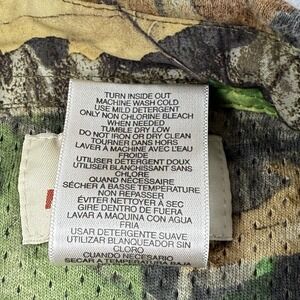 TURN INSIDE OUT
MACHINE WASH COLD
USE MILD DETERGENT
ONLY NON CHLORINE BLEACH
WHEN NEEDED
TUMBLE DRY LOW
DO NOT IRON OR DRY CLEAN
TOURNER DANS HORS
LAVER À MACHINE AVEC L'EAU
FROIDE
UTILISER DETERGENT DOUX
UTILISER BLANCHISSANT SANS
CHLORE
QUAND NÉCESSAIRE
SÉCHER À BASSE TEMPÉRATURE
NON REPASSER
ÉVITER NETTOYER À SEC
GIRE DENTRO DE FUERA
LAVAR A MAQUINA CON AGUA
FRIA
USAR DETERGENTE SUAVE
UTILIZAR BLANQUEADOR SIN
CLORO
CUANDO NECESARIO
A TEMPERATURA BAJA